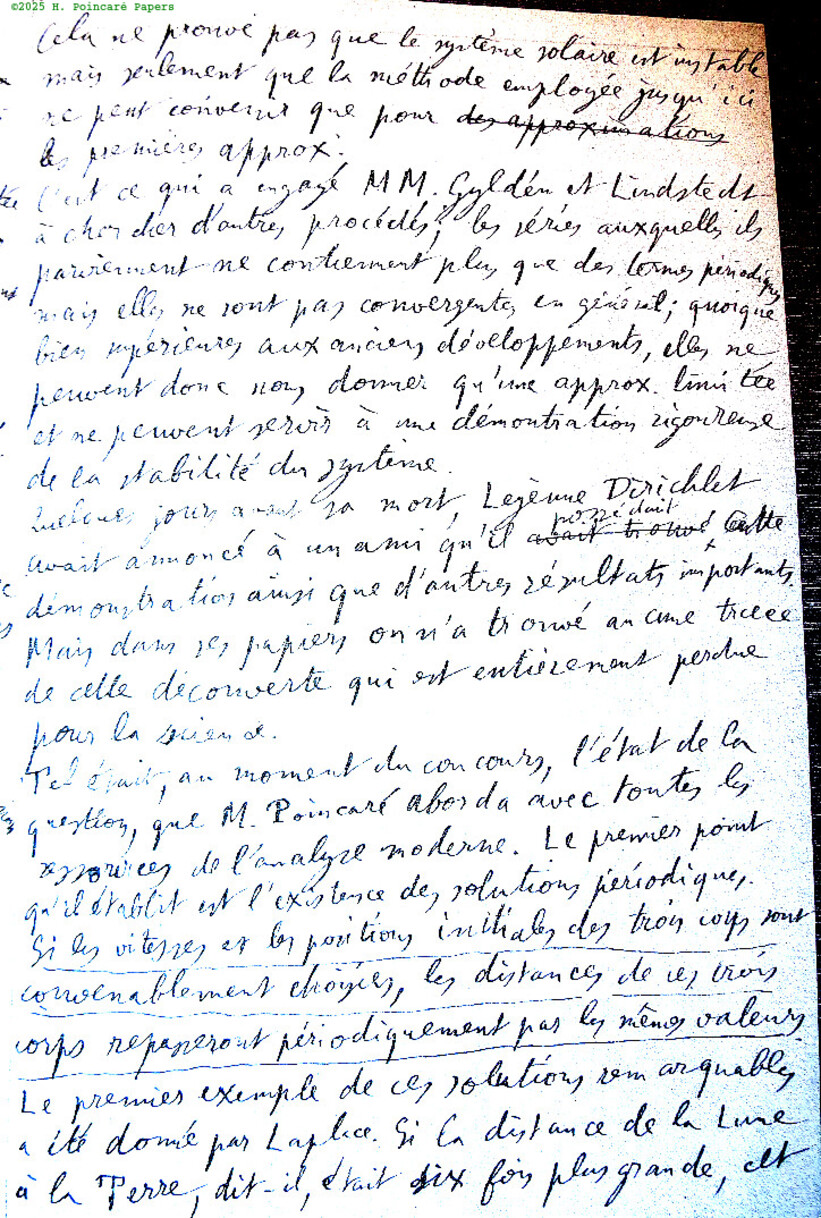 ©2025 H. Poincaré Papers
Cela ne prouve pas que le système solaire est instable
mais seulement que la méthode employée jusqu'ici
ne peut convenir que pour des approximations
les premières approx.
C'est ce qui a engagé MM. Gyldén et Lindstedt
à chercher d'autres procédés; les séries auxquelles ils
parviennent ne contiennent plus que des termes périodiques
mais elles ne sont pas convergentes en général; quoique
bien supérieures aux anciens développements, elles ne
peuvent donc nous donner qu'une approx. limitée
et ne peuvent servir à une démontration rigoureuse
de la stabilité du système.
Quelques jours avant sa mort, Lejeune Dirichlet
possédait
avait annoncé à un ami qu'il avait trouvé cette
démonstration ainsi que d'autres résultats importants.
Mais dans ses papiers on n'a trouvé aucune trace
de cette découverte qui est entièrement perdue
pour la science.
Tel était, au moment du concours, l'état de la
question, que M. Poincaré aborda avec toutes les
ressources de l'analyse moderne. Le premier point
qu'il établit est l'existence des solutions périodiques.
Si les vitesses et les positions initiales des trois corps sont
convenablement choisies, les distances de ces trois
corps repasseront périodiquement par les mêmes valeurs.
Le premier exemple de ces solutions remarquables
a été donné par Laplace. Si la distance de la Lune
à la Terre, dit-il, était dix fois plus grande, cet